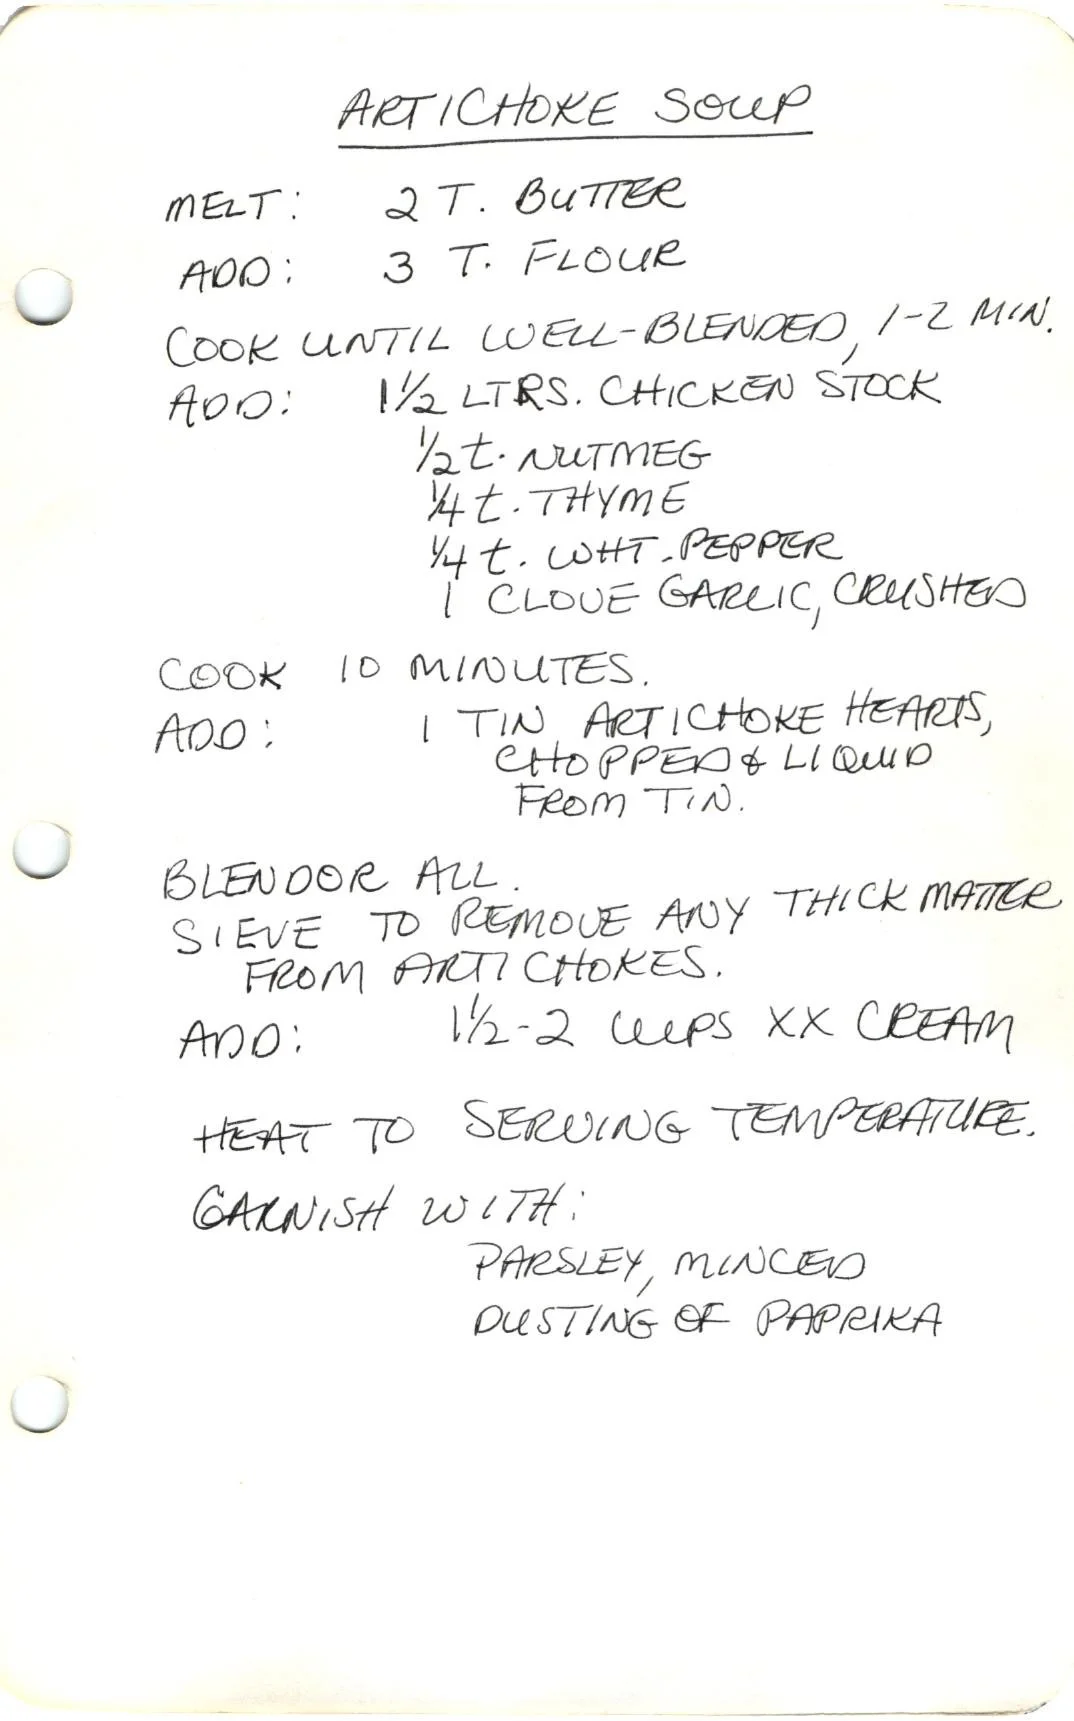 ARTICHOKE SOUP
MELT: 2 T. BUTTER
ADD: 3 T. FLOUR
COOK UNTIL WELL-BLENDED, 1-2 MIN.
ADD: 1½ LTRS. CHICKEN STOCK
½ t. NUTMEG
¼ t. THYME
¼ t. WHT. PEPPER
1 CLOVE GARLIC, CRUSHED
COOK 10 MINUTES.
ADD: 1 TIN ARTICHOKE HEARTS,
CHOPPED & LIQUID
FROM TIN.
BLENDOR ALL.
SIEVE TO REMOVE ANY THICK MATTER
FROM ARTICHOKES.
ADD: 1½-2 CUPS XX CREAM
HEAT TO SERVING TEMPERATURE.
GARNISH WITH:
PARSLEY, MINCED
DUSTING OF PAPRIKA